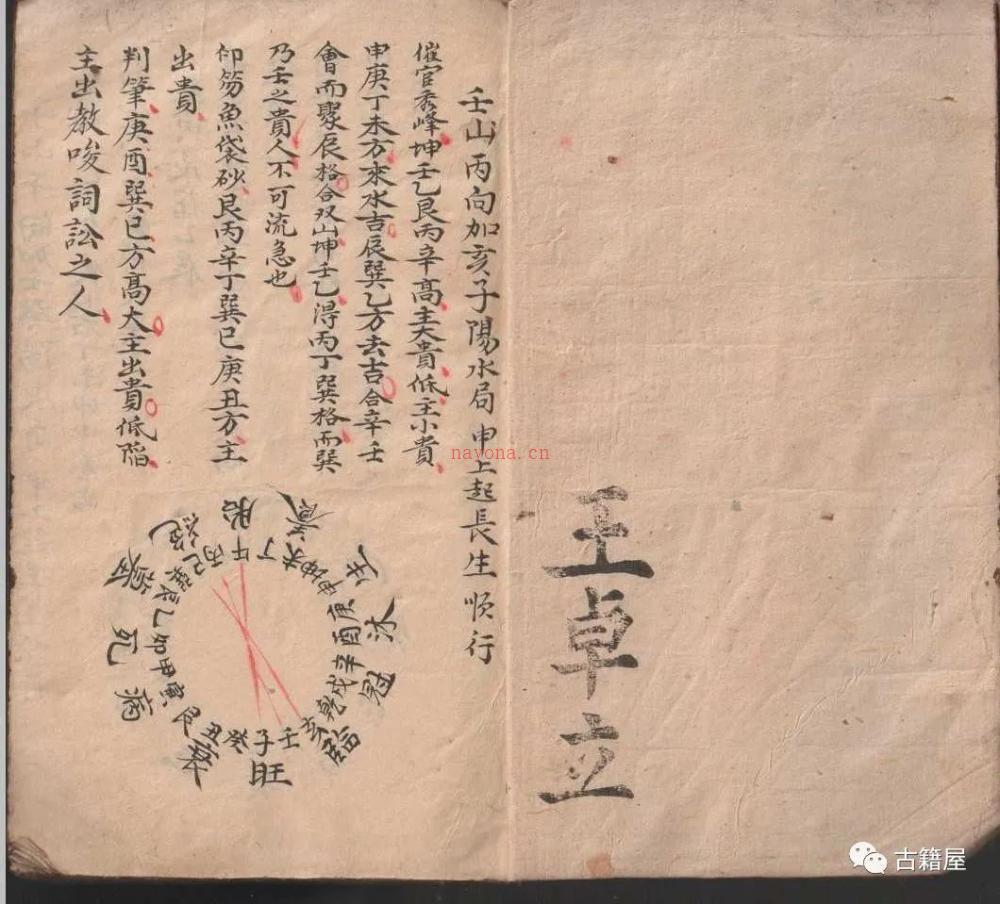 王卓立
壬山丙向加亥子陽水局申上起長生順行
催官秀峰坤壬乙艮丙辛高主大貴低主小貴
申庚丁未方來水吉辰巽乙方去吉合辛壬
會而聚辰格合双山坤壬乙得丙丁巽格而巽
乃壬之貴人不可流急也
仰笏魚袋砂艮丙辛丁巽巳庚丑方主
出貴
判筆庚酉巽巳方高大主出貴低陷
主出教唆詞訟之人
胎養生沐冠臨旺衰病死墓绝
午丁未坤申庚酉辛戌乾亥壬子癸丑艮寅甲卯乙辰巽巳丙
nayona.cn
古籍屋